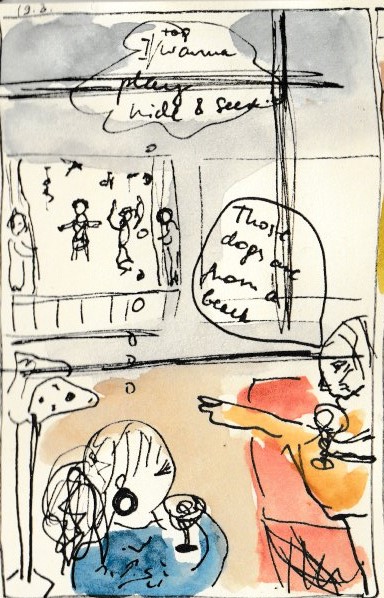 19.8.
I wanna
top
play
hide & seek
Those
dogs are
from a
beach